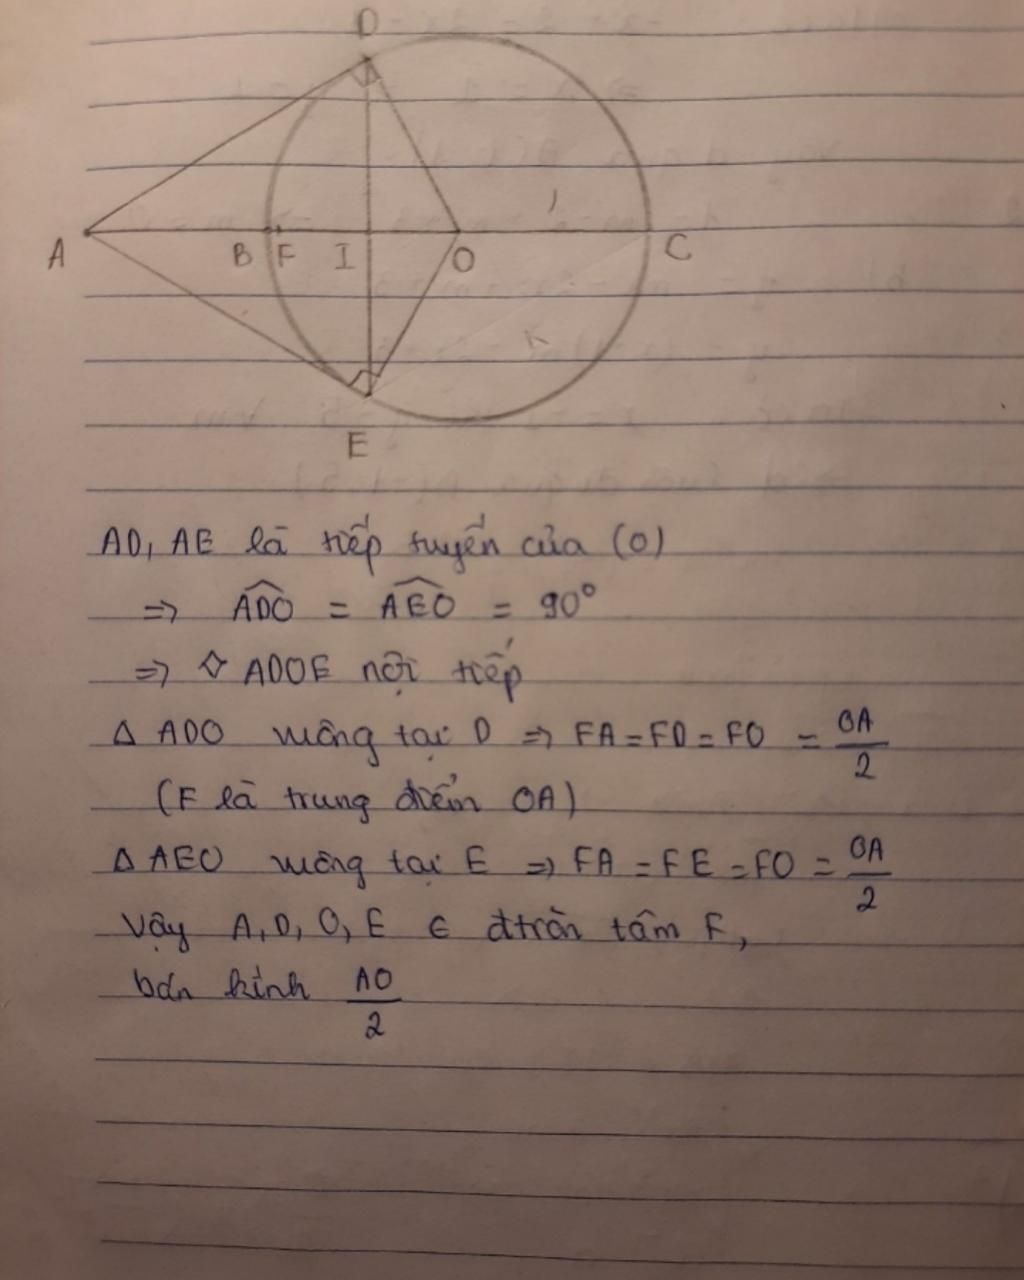 D
A B F I O C
K
E
AD, AE là tiếp tuyến của (O)
=> ADO = AEO = 90°
=> ◇ ADOE nội tiếp
Δ ADO vuông tại D => FA = FD = FO = OA/2
(F là trung điểm OA)
Δ AEO vuông tại E => FA = FE = FO = OA/2
Vậy A, D, O, E ∈ đtròn tâm F,
bán kính AO/2